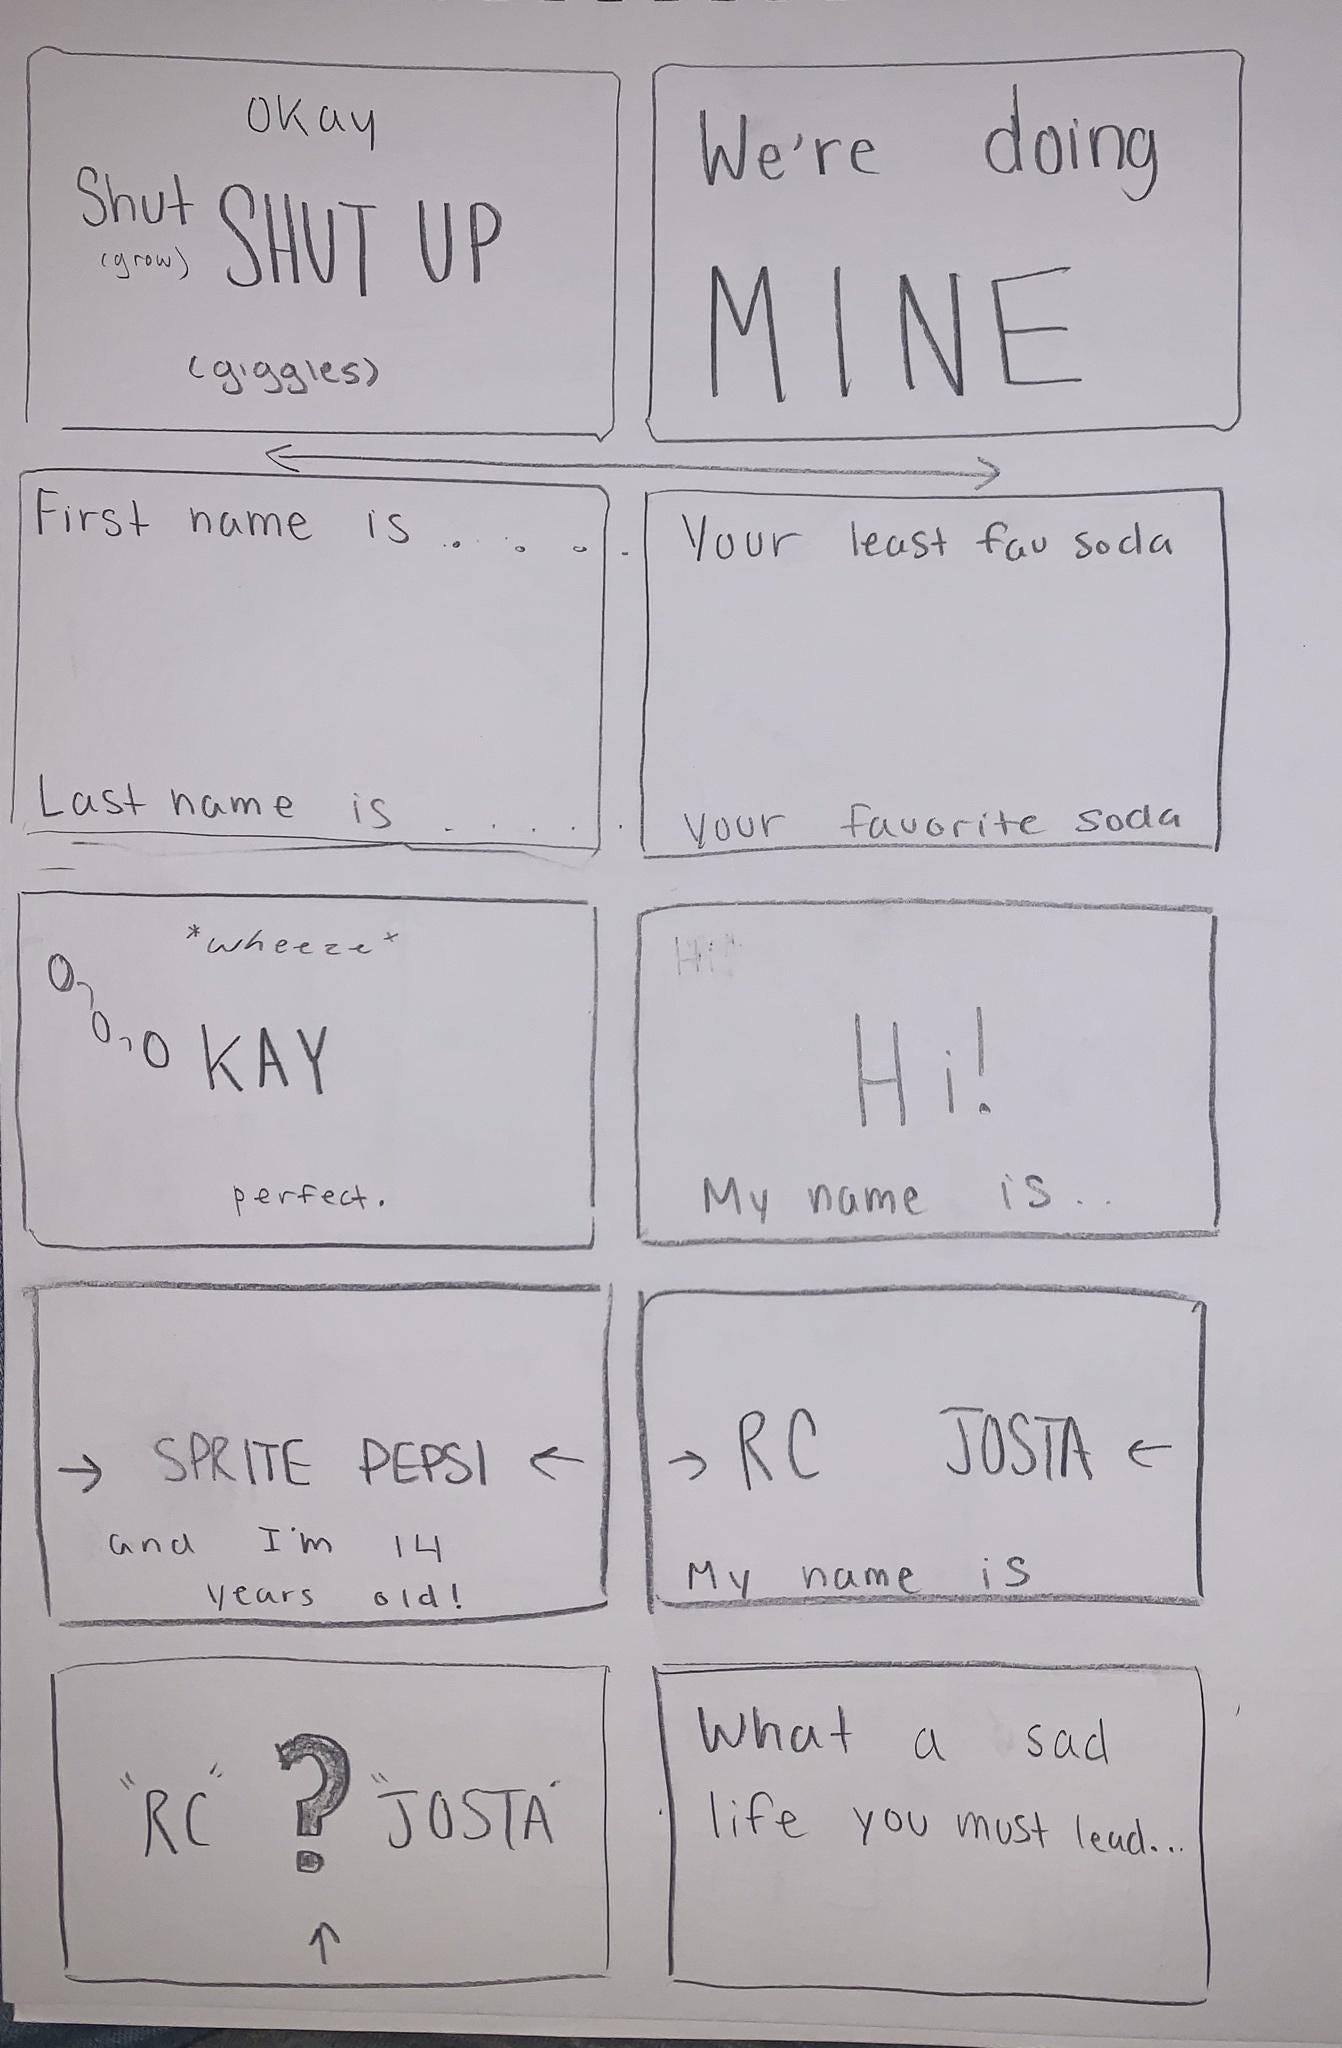 Okay
Shut SHUT UP
(grow)
(giggles)
We're doing
MINE
First name is . . . . .
Last name is . . . . .
Your least fav soda
your favorite soda
*wheeze*
O, O, O KAY
perfect.
Hi!
Hi!
My name is..
→ SPRITE PEPSI ←
and I'm 14
years old!
→ RC JOSTA ←
My name is
"RC" ? "JOSTA"
↑
What a sad
life you must lead...